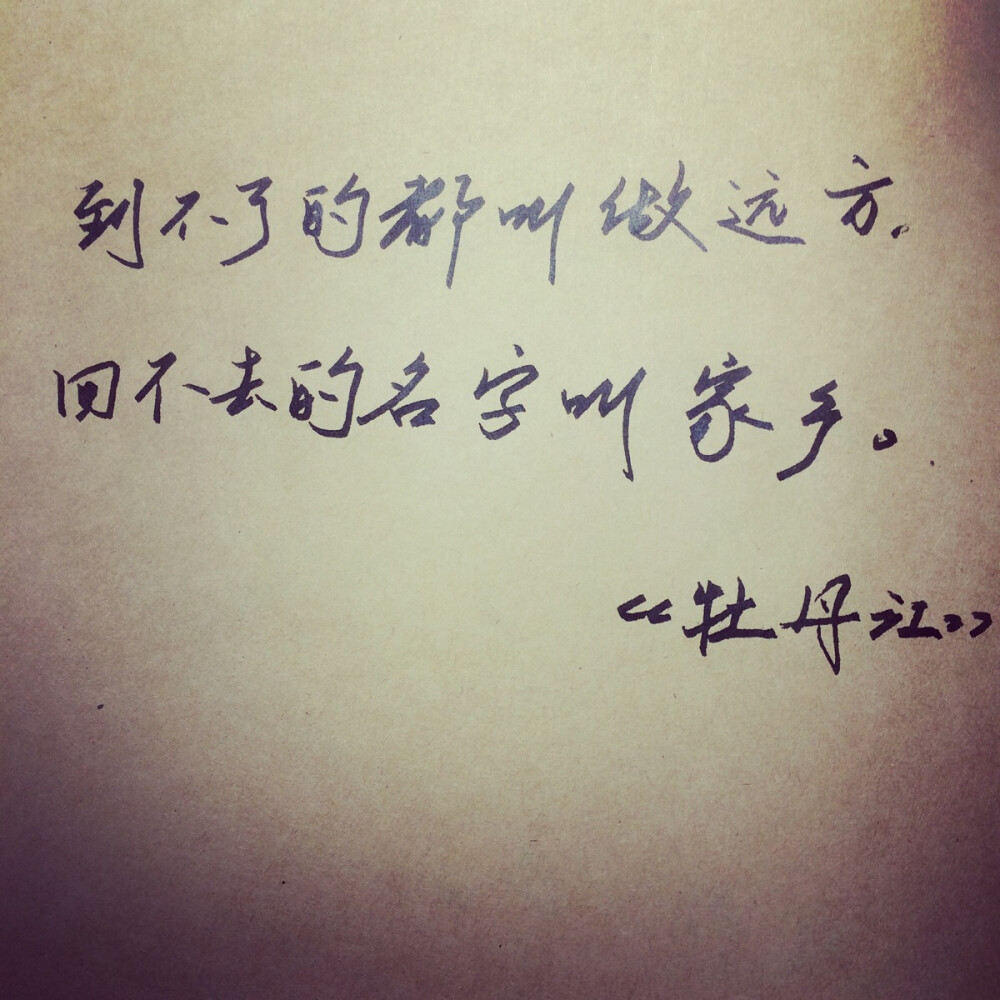 到不了的都叫做远方.
回不去的名字叫家乡。
《牡丹江》